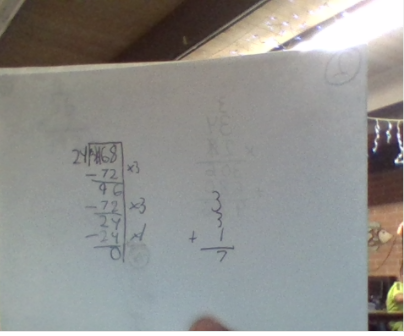 24)168
-72 x3
96
-72 x3
24
-24 x1
0
3
3
+ 1
7